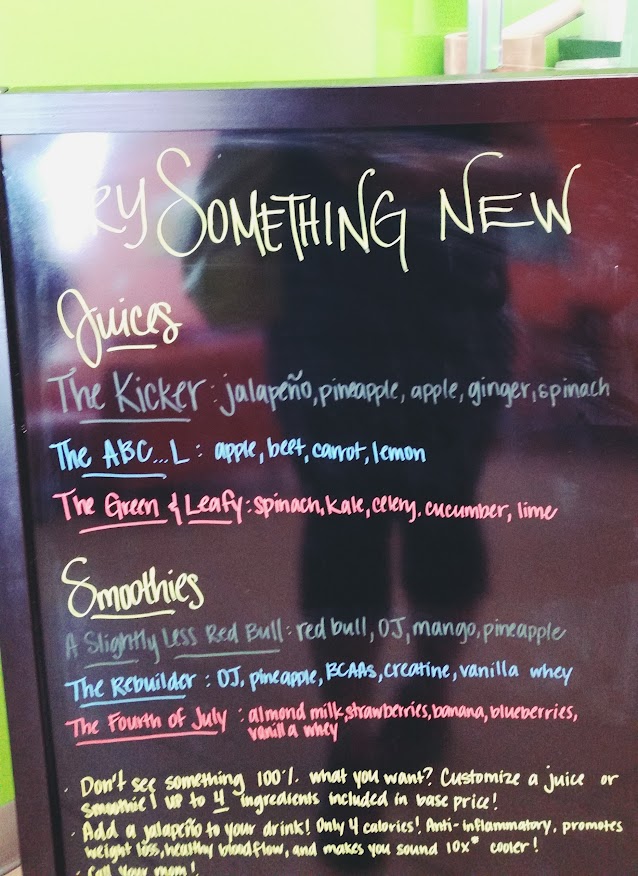 TRY SOMETHING NEW
Juices
The Kicker: jalapeño, pineapple, apple, ginger, spinach
The ABC...L: apple, beet, carrot, lemon
The Green & Leafy: spinach, kale, celery, cucumber, lime
Smoothies
A Slightly Less Red Bull: red bull, OJ, mango, pineapple
The Rebuilder: OJ, pineapple, BCAAs, creatine, vanilla whey
The Fourth of July: almond milk, strawberries, banana, blueberries,
vanilla whey
· Don't see something 100% what you want? Customize a juice or
smoothie! Up to 4 ingredients included in base price!
· Add a jalapeño to your drink! Only 4 calories! Anti-inflammatory, promotes
weight loss, healthy bloodflow, and makes you sound 10x* cooler!
· Call your mom!